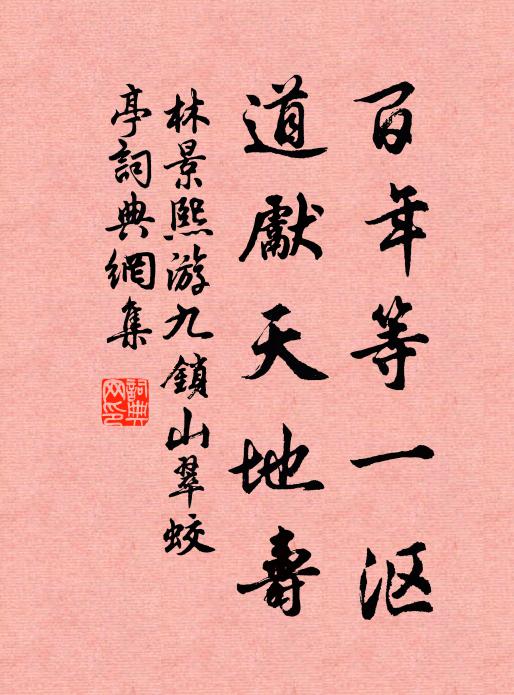 百年等一沤
道獻天地壽
林景熙游九鎖山翠蛟
亭詞典網集
詞典
网印